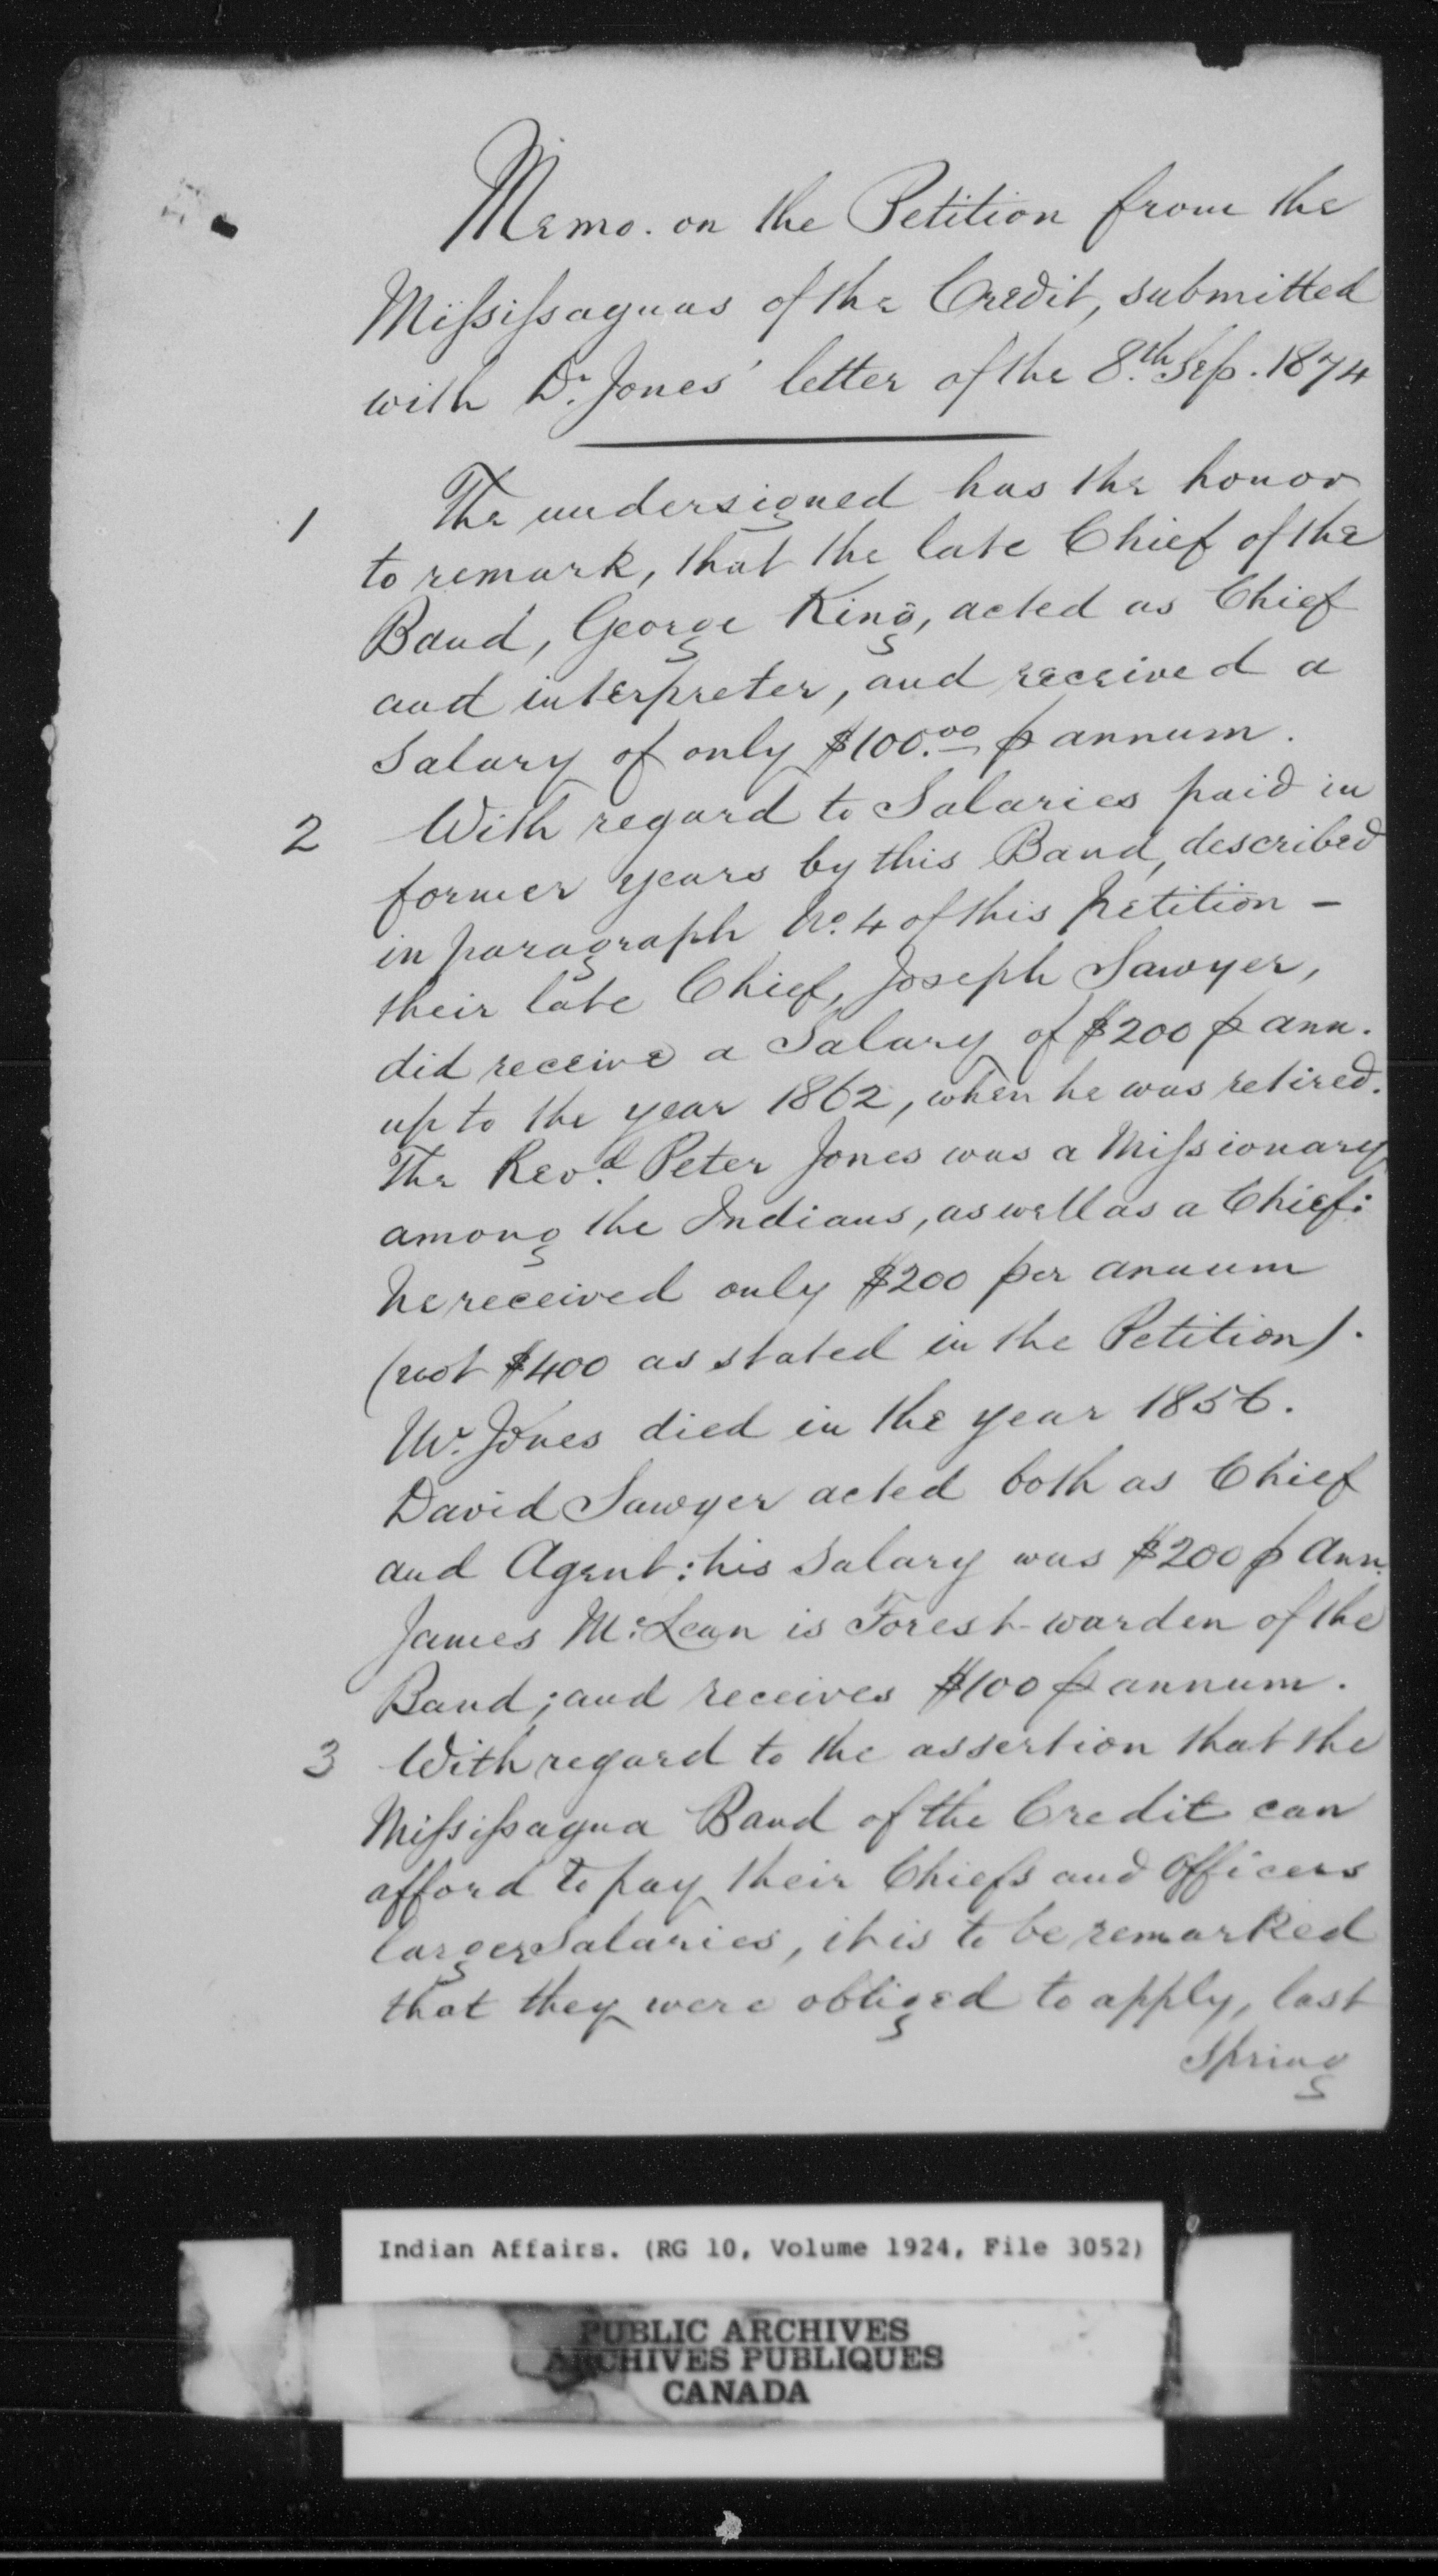 Memo. on the Petition from the
Mississaguas of the Credit, submitted
with Dr. Jones' letter of the 8th. Sep. 1874
1 The undersigned has the honor
to remark, that the late Chief of the
Band, George King, acted as Chief
and interpreter, and received a
Salary of only $100.00 p annum.
2 With regard to Salaries paid in
former years by this Band, described
in paragraph No. 4 of this petition -
their late Chief, Joseph Sawyer,
did receive a Salary of $200 p ann.
up to the year 1862, when he was retired.
The Revd. Peter Jones was a Missionary
among the Indians, as well as a Chief:
he received only $200 per annum
(not $400 as stated in the Petition).
Mr. Jones died in the year 1856.
David Sawyer acted both as Chief
and Agent: his Salary was $200 p Ann.
James McLean is Forest-warden of the
Band; and receives $100 p annum.
3 With regard to the assertion that the
Mississagua Band of the Credit can
afford to pay their Chiefs and Officers
larger Salaries, it is to be remarked
that they were obliged to apply, last
Spring
Indian Affairs. (RG 10, Volume 1924, File 3052)
PUBLIC ARCHIVES
ARCHIVES PUBLIQUES
CANADA